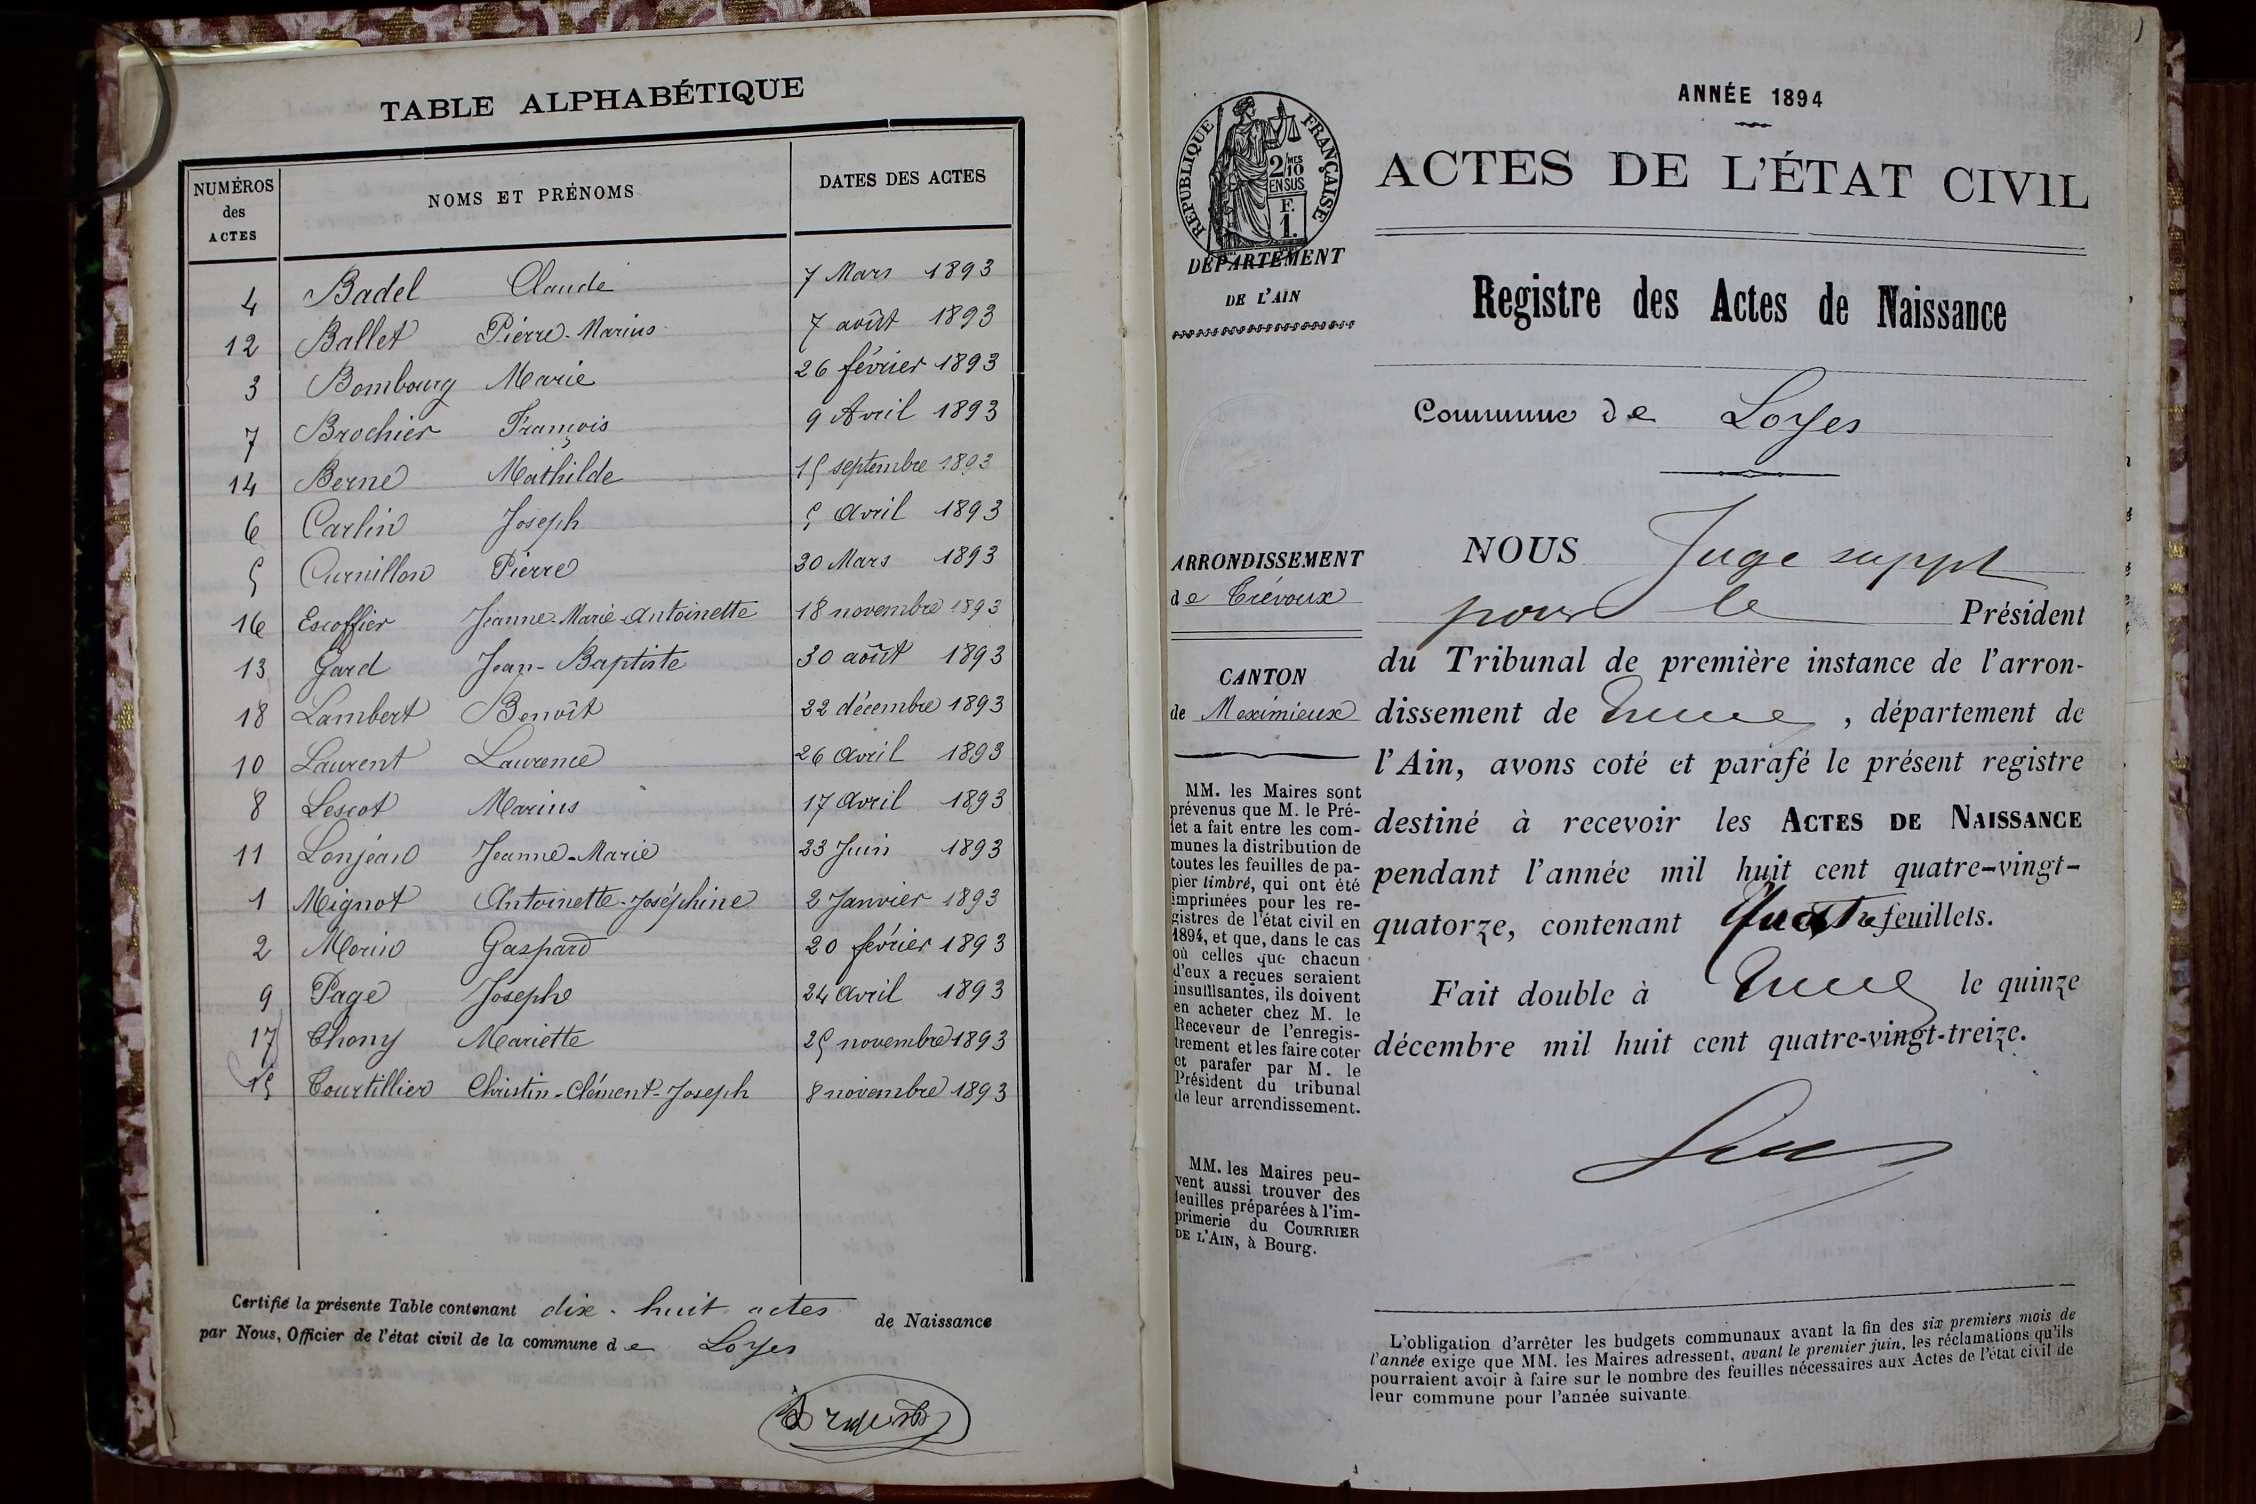 TABLE ALPHABÉTIQUE
NUMÉROS des ACTES NOMS ET PRÉNOMS DATES DES ACTES
4 Badel Claude 7 Mars 1893
12 Ballet Pierre-Marius 7 août 1893
3 Bombourg Marie 26 février 1893
7 Brochier François 9 Avril 1893
14 Berne Mathilde 15 septembre 1893
6 Carlin Joseph 5 Avril 1893
5 Curnillon Pierre 30 Mars 1893
16 Escoffier Jeanne-Marie-Antoinette 18 novembre 1893
13 Gard Jean-Baptiste 30 août 1893
18 Lambert Benoît 22 décembre 1893
10 Laurent Laurence 26 Avril 1893
8 Lescot Marius 17 Avril 1893
11 Lonjean Jeanne-Marie 23 Juin 1893
1 Mignot Antoinette-Joséphine 2 Janvier 1893
2 Morin Gaspard 20 février 1893
9 Page Joseph 24 Avril 1893
17 Thony Mariette 25 novembre 1893
15 Tourtillier Christin-Clément-Joseph 8 novembre 1893
Certifié la présente Table contenant dix-huit actes de Naissance
par Nous, Officier de l'état civil de la commune de Loyes
ANNÉE 1894
RÉPUBLIQUE FRANÇAISE
2/10 MES
EN SUS
F.
1.
ACTES DE L'ÉTAT CIVIL
DÉPARTEMENT
DE L'AIN
Registre des Actes de Naissance
Commune de Loyes
ARRONDISSEMENT
de Trévoux
CANTON
de Meximieux
MM. les Maires sont
prévenus que M. le Pré-
fet a fait entre les com-
munes la distribution de
toutes les feuilles de pa-
pier timbré, qui ont été
imprimées pour les re-
gistres de l'état civil en
1894, et que, dans le cas
où celles que chacun
d'eux a reçues seraient
insuffisantes, ils doivent
en acheter chez M. le
Receveur de l'enregis-
trement et les faire coter
et parafer par M. le
Président du tribunal
de leur arrondissement.
MM. les Maires peu-
vent aussi trouver des
feuilles préparées à l'im-
primerie du COURRIER
DE L'AIN, à Bourg.
NOUS Juge suppt
pour le Président
du Tribunal de première instance de l'arron-
dissement de , département de
l'Ain, avons coté et parafé le présent registre
destiné à recevoir les ACTES DE NAISSANCE
pendant l'année mil huit cent quatre-vingt-
quatorze, contenant Quatre feuillets.
Fait double à le quinze
décembre mil huit cent quatre-vingt-treize.
L'obligation d'arrêter les budgets communaux avant la fin des six premiers mois de
l'année exige que MM. les Maires adressent, avant le premier juin, les réclamations qu'ils
pourraient avoir à faire sur le nombre des feuilles nécessaires aux Actes de l'état civil de
leur commune pour l'année suivante.